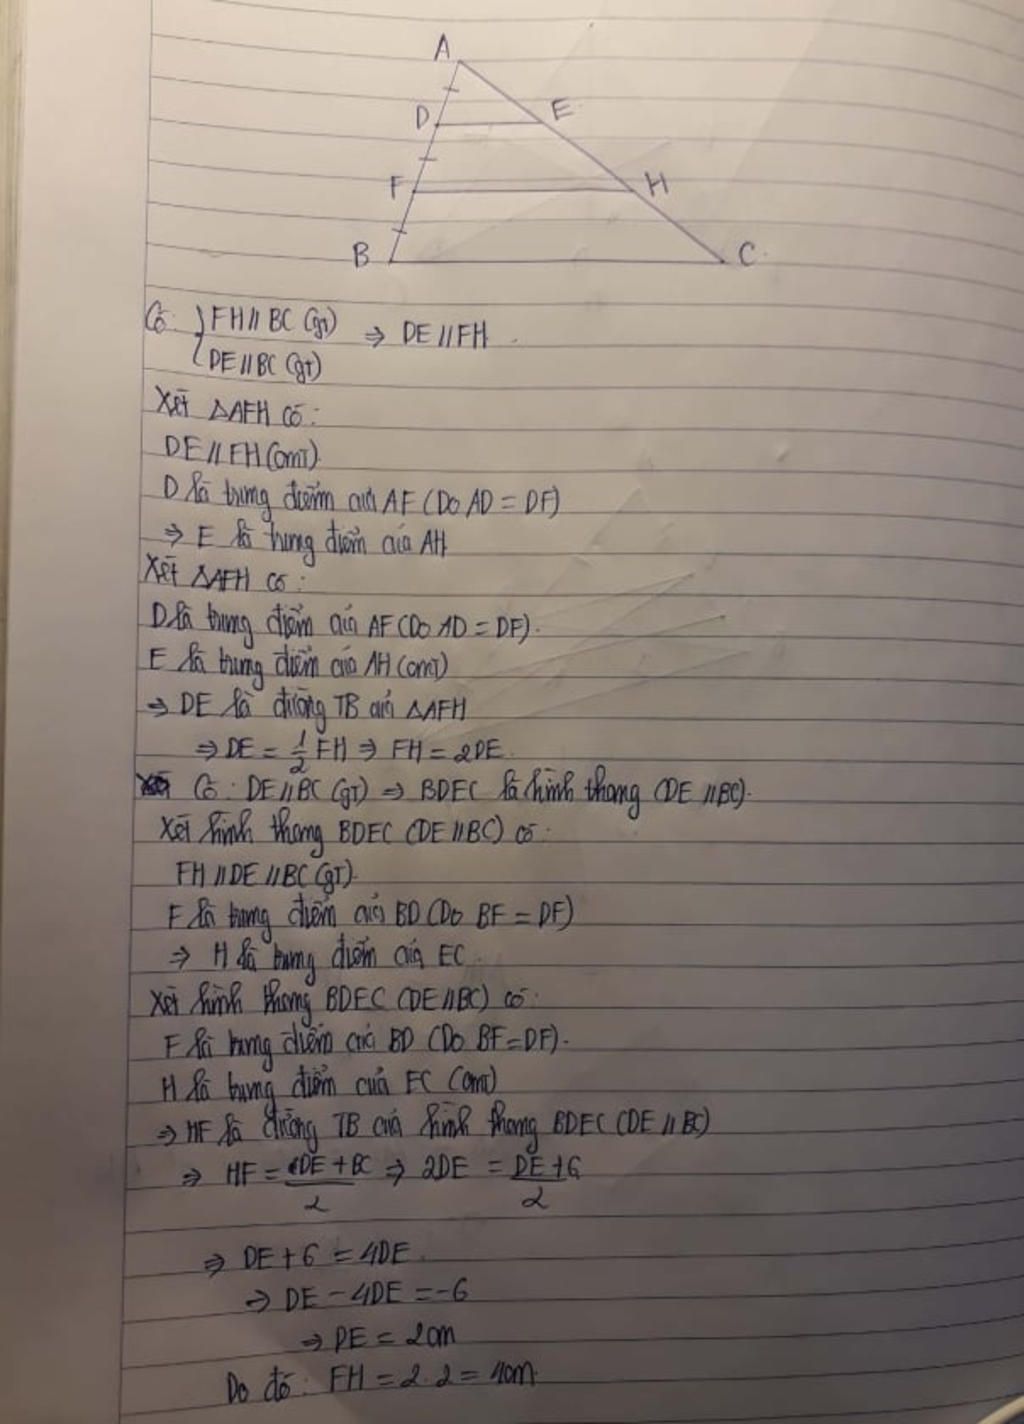 A
D
E
F
H
B
C
Có: { FH // BC (gt)
DE // BC (gt) ⇒ DE // FH
Xét △AFH có:
DE // FH (cmt)
D là trung điểm của AF (Do AD = DF)
⇒ E là trung điểm của AH
Xét △AFH có:
D là trung điểm của AF (Do AD = DF).
E là trung điểm của AH (cmt)
⇒ DE là đường TB của △AFH
⇒ DE = 1/2 FH ⇒ FH = 2DE
Có: DE // BC (gt) ⇒ BDEC là hình thang (DE // BC).
Xét hình thang BDEC (DE // BC) có:
FH // DE // BC (gt).
F là trung điểm của BD (Do BF = DF)
⇒ H là trung điểm của EC
Xét hình thang BDEC (DE // BC) có:
F là trung điểm của BD (Do BF = DF).
H là trung điểm của EC (cmt)
⇒ HF là đường TB của hình thang BDEC (DE // BC)
⇒ HF = (DE + BC)/2 ⇒ 2DE = (DE + 6)/2
⇒ DE + 6 = 4DE
⇒ DE - 4DE = -6
⇒ DE = 2cm
Do đó: FH = 2.2 = 4cm